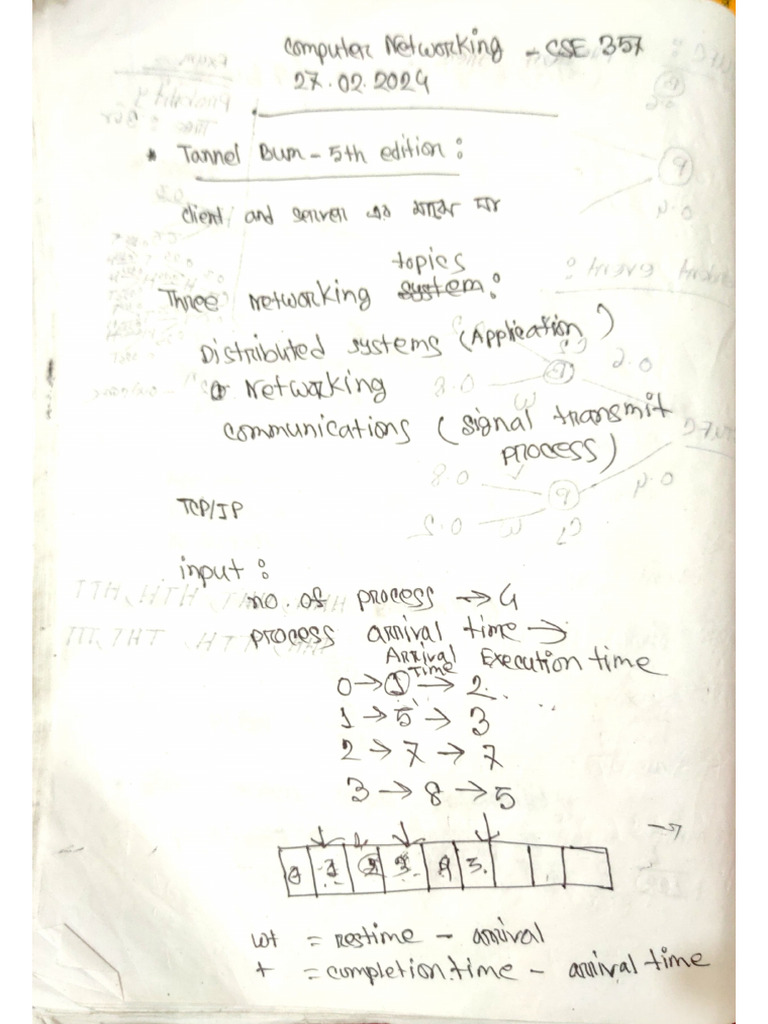 Computer Networking - CSE 357
27.02.2024
* Tannel Bum - 5th edition:
client and server এর মাঝে
topics
Three networking system:
Distributed systems (Application)
Networking
communications (signal transmit
process)
TCP/IP
input:
no. of process → 4
process arrival time →
Arrival Execution time
Time
0 → 1 → 2
1 → 5 → 3
2 → 7 → 7
3 → 8 → 5
wt = restime - arrival
t = completion time - arrival time